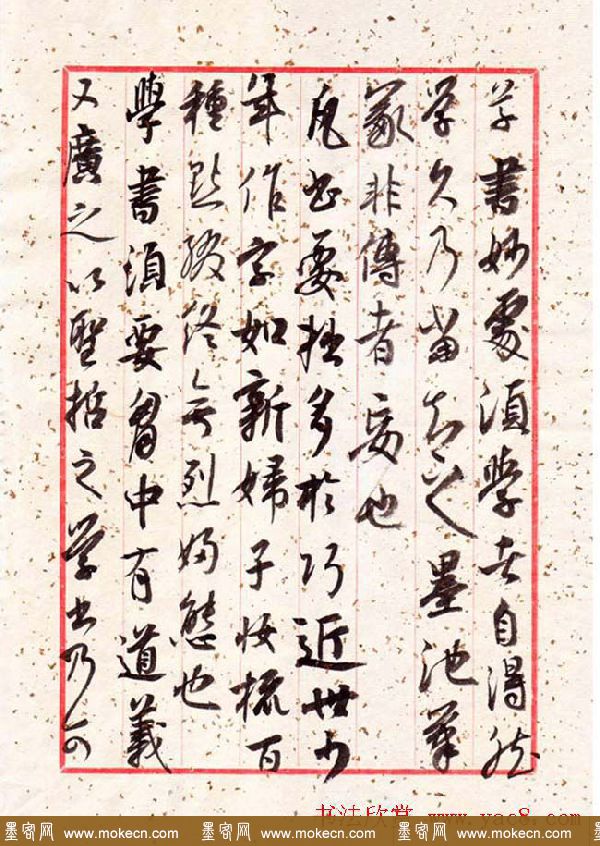 草書妙處須學者自得然
學久乃當知之墨池筆
冢非傳者妄也
凡書要拙多於巧近世少
年作字如新婦子妝梳百
種點綴終無烈婦態也
學書須要胷中有道義
又廣之以聖哲之學書乃可
书法欣赏 www.yac8.com
墨客网 www.mokecn.com 墨客网 www.mokecn.com 墨客网 www.mokecn.com